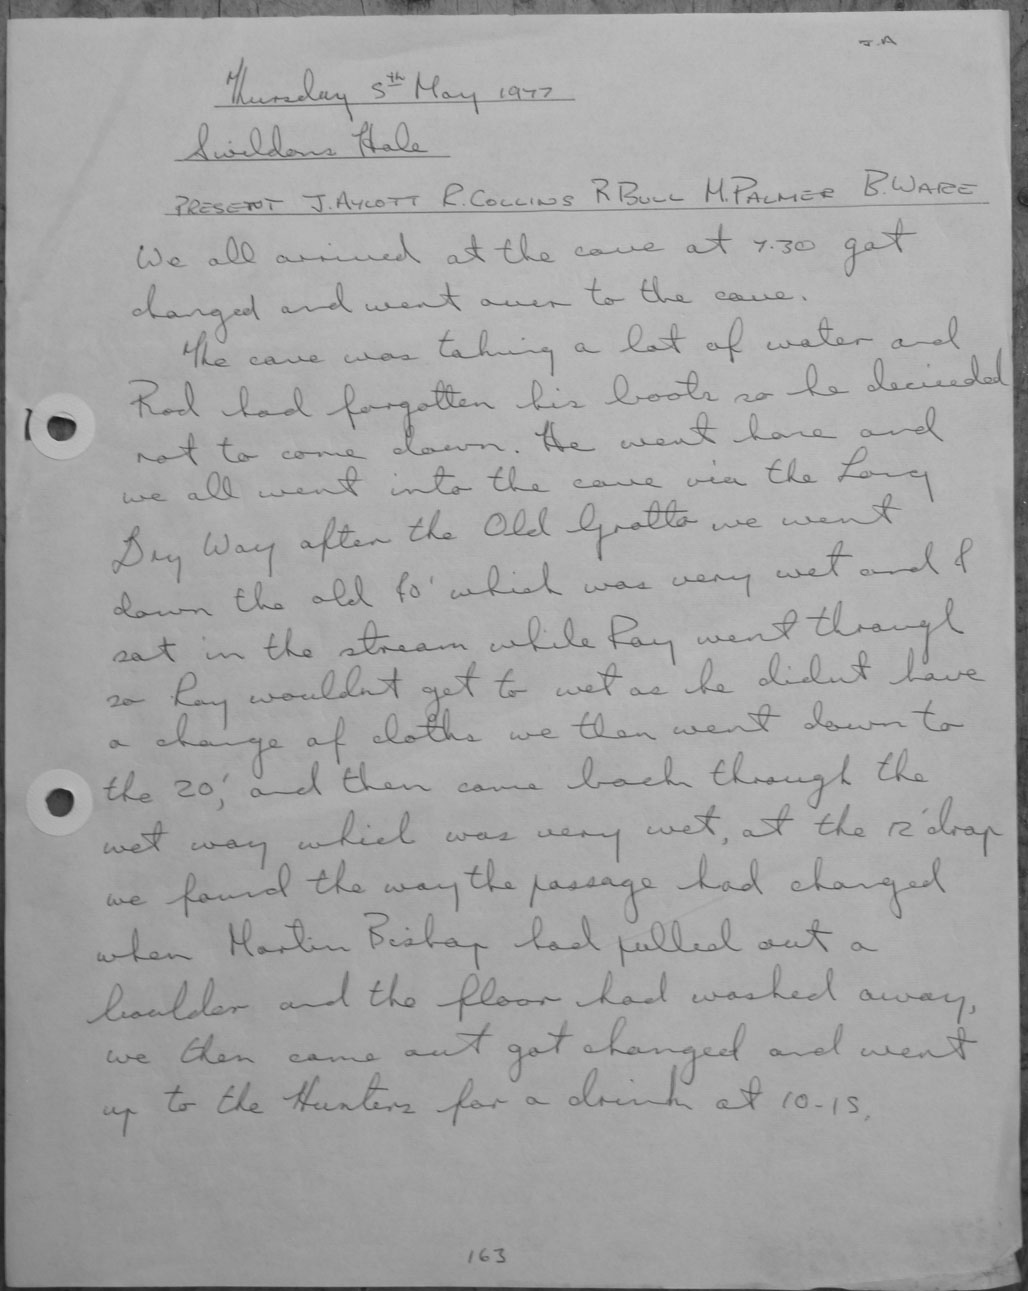 J.A
Thursday 5th May 1977
Swildons Hole
PRESENT J.AYLOTT R.COLLINS R BULL M.PALMER B.WARE
We all arrived at the cave at 7.30 got
changed and went over to the cave.
The cave was taking a lot of water and
Rod had forgotten his boots so he decieded
not to come down. He went home and
we all went into the cave via the Long
Dry Way after the Old Grotto we went
down the old 40' which was very wet and I
sat in the stream while Ray went through
so Ray wouldnt get to wet as he didnt have
a change of cloths we then went down to
the 20', and then came back through the
wet way which was very wet, at the 12' drop
we found the way the passage had changed
when Martin Bishop had pulled out a
boulder and the floor had washed away,
we then came out got changed and went
up to the Hunters for a drink at 10-15.
163